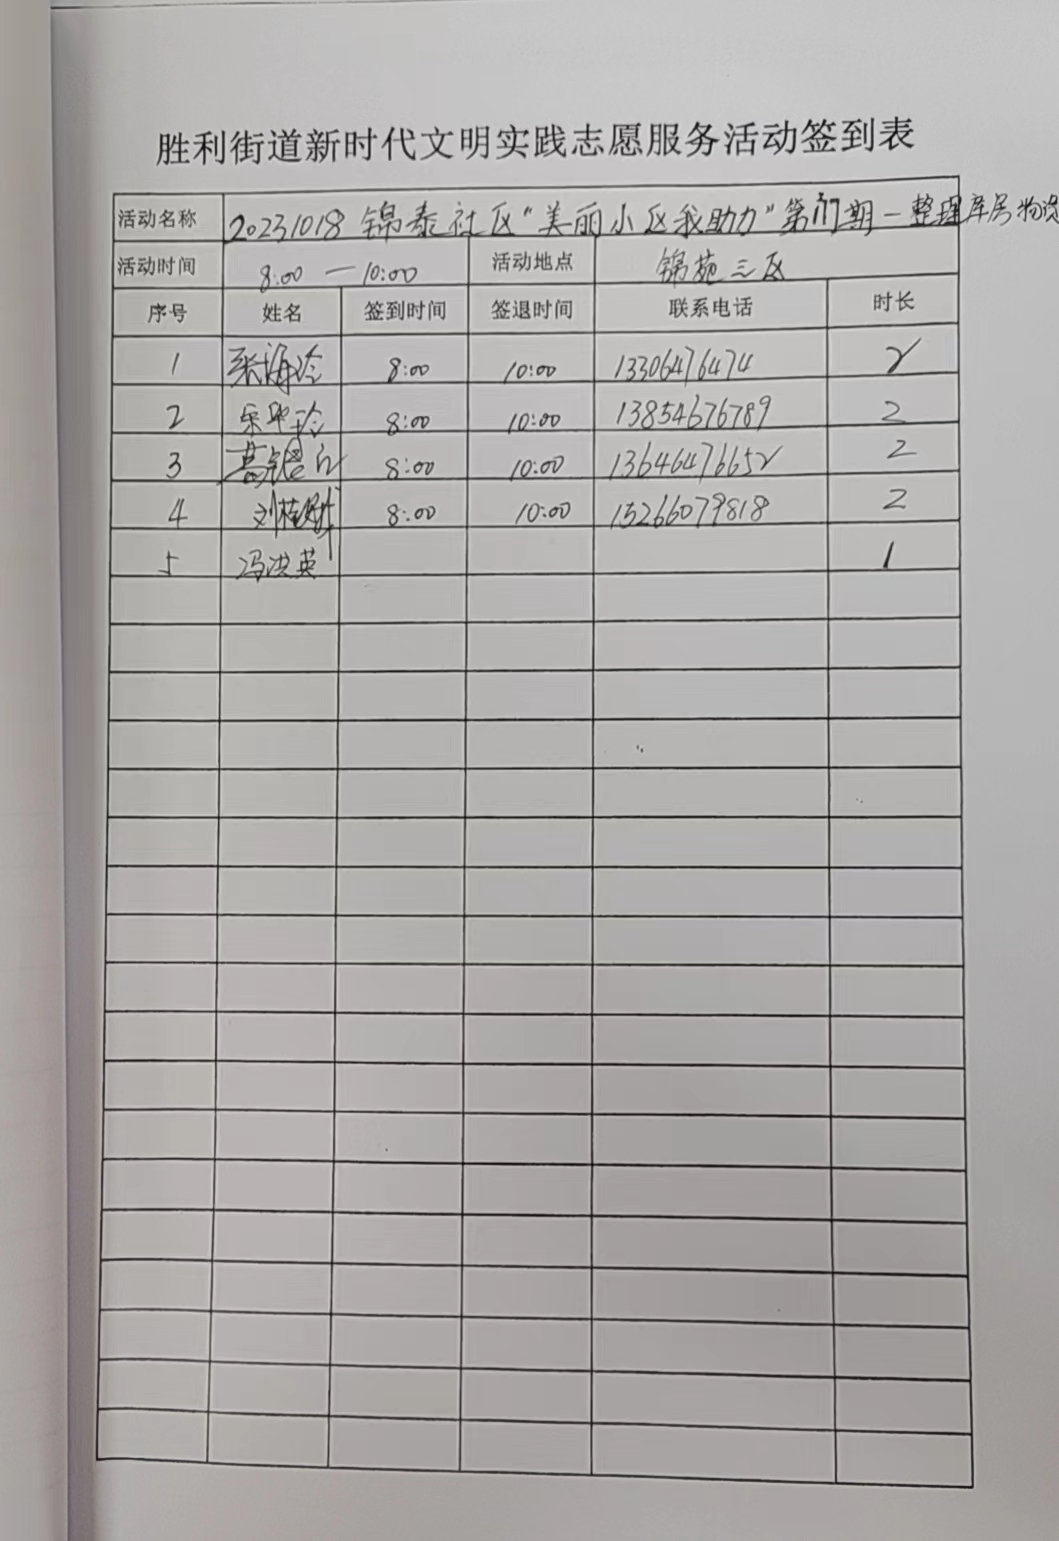 胜利街道新时代文明实践志愿服务活动签到表
活动名称 20231018 锦泰社区"美丽小区我助力"第 期—整理库房物资
活动时间 8:00 — 10:00 活动地点 锦苑三区
序号 姓名 签到时间 签退时间 联系电话 时长
1 张海玲 8:00 10:00 13306476474 2
2 8:00 10:00 13854676789 2
3 8:00 10:00 13646476652 2
4 刘桂 8:00 10:00 15266079818 2
5 冯洪英 1